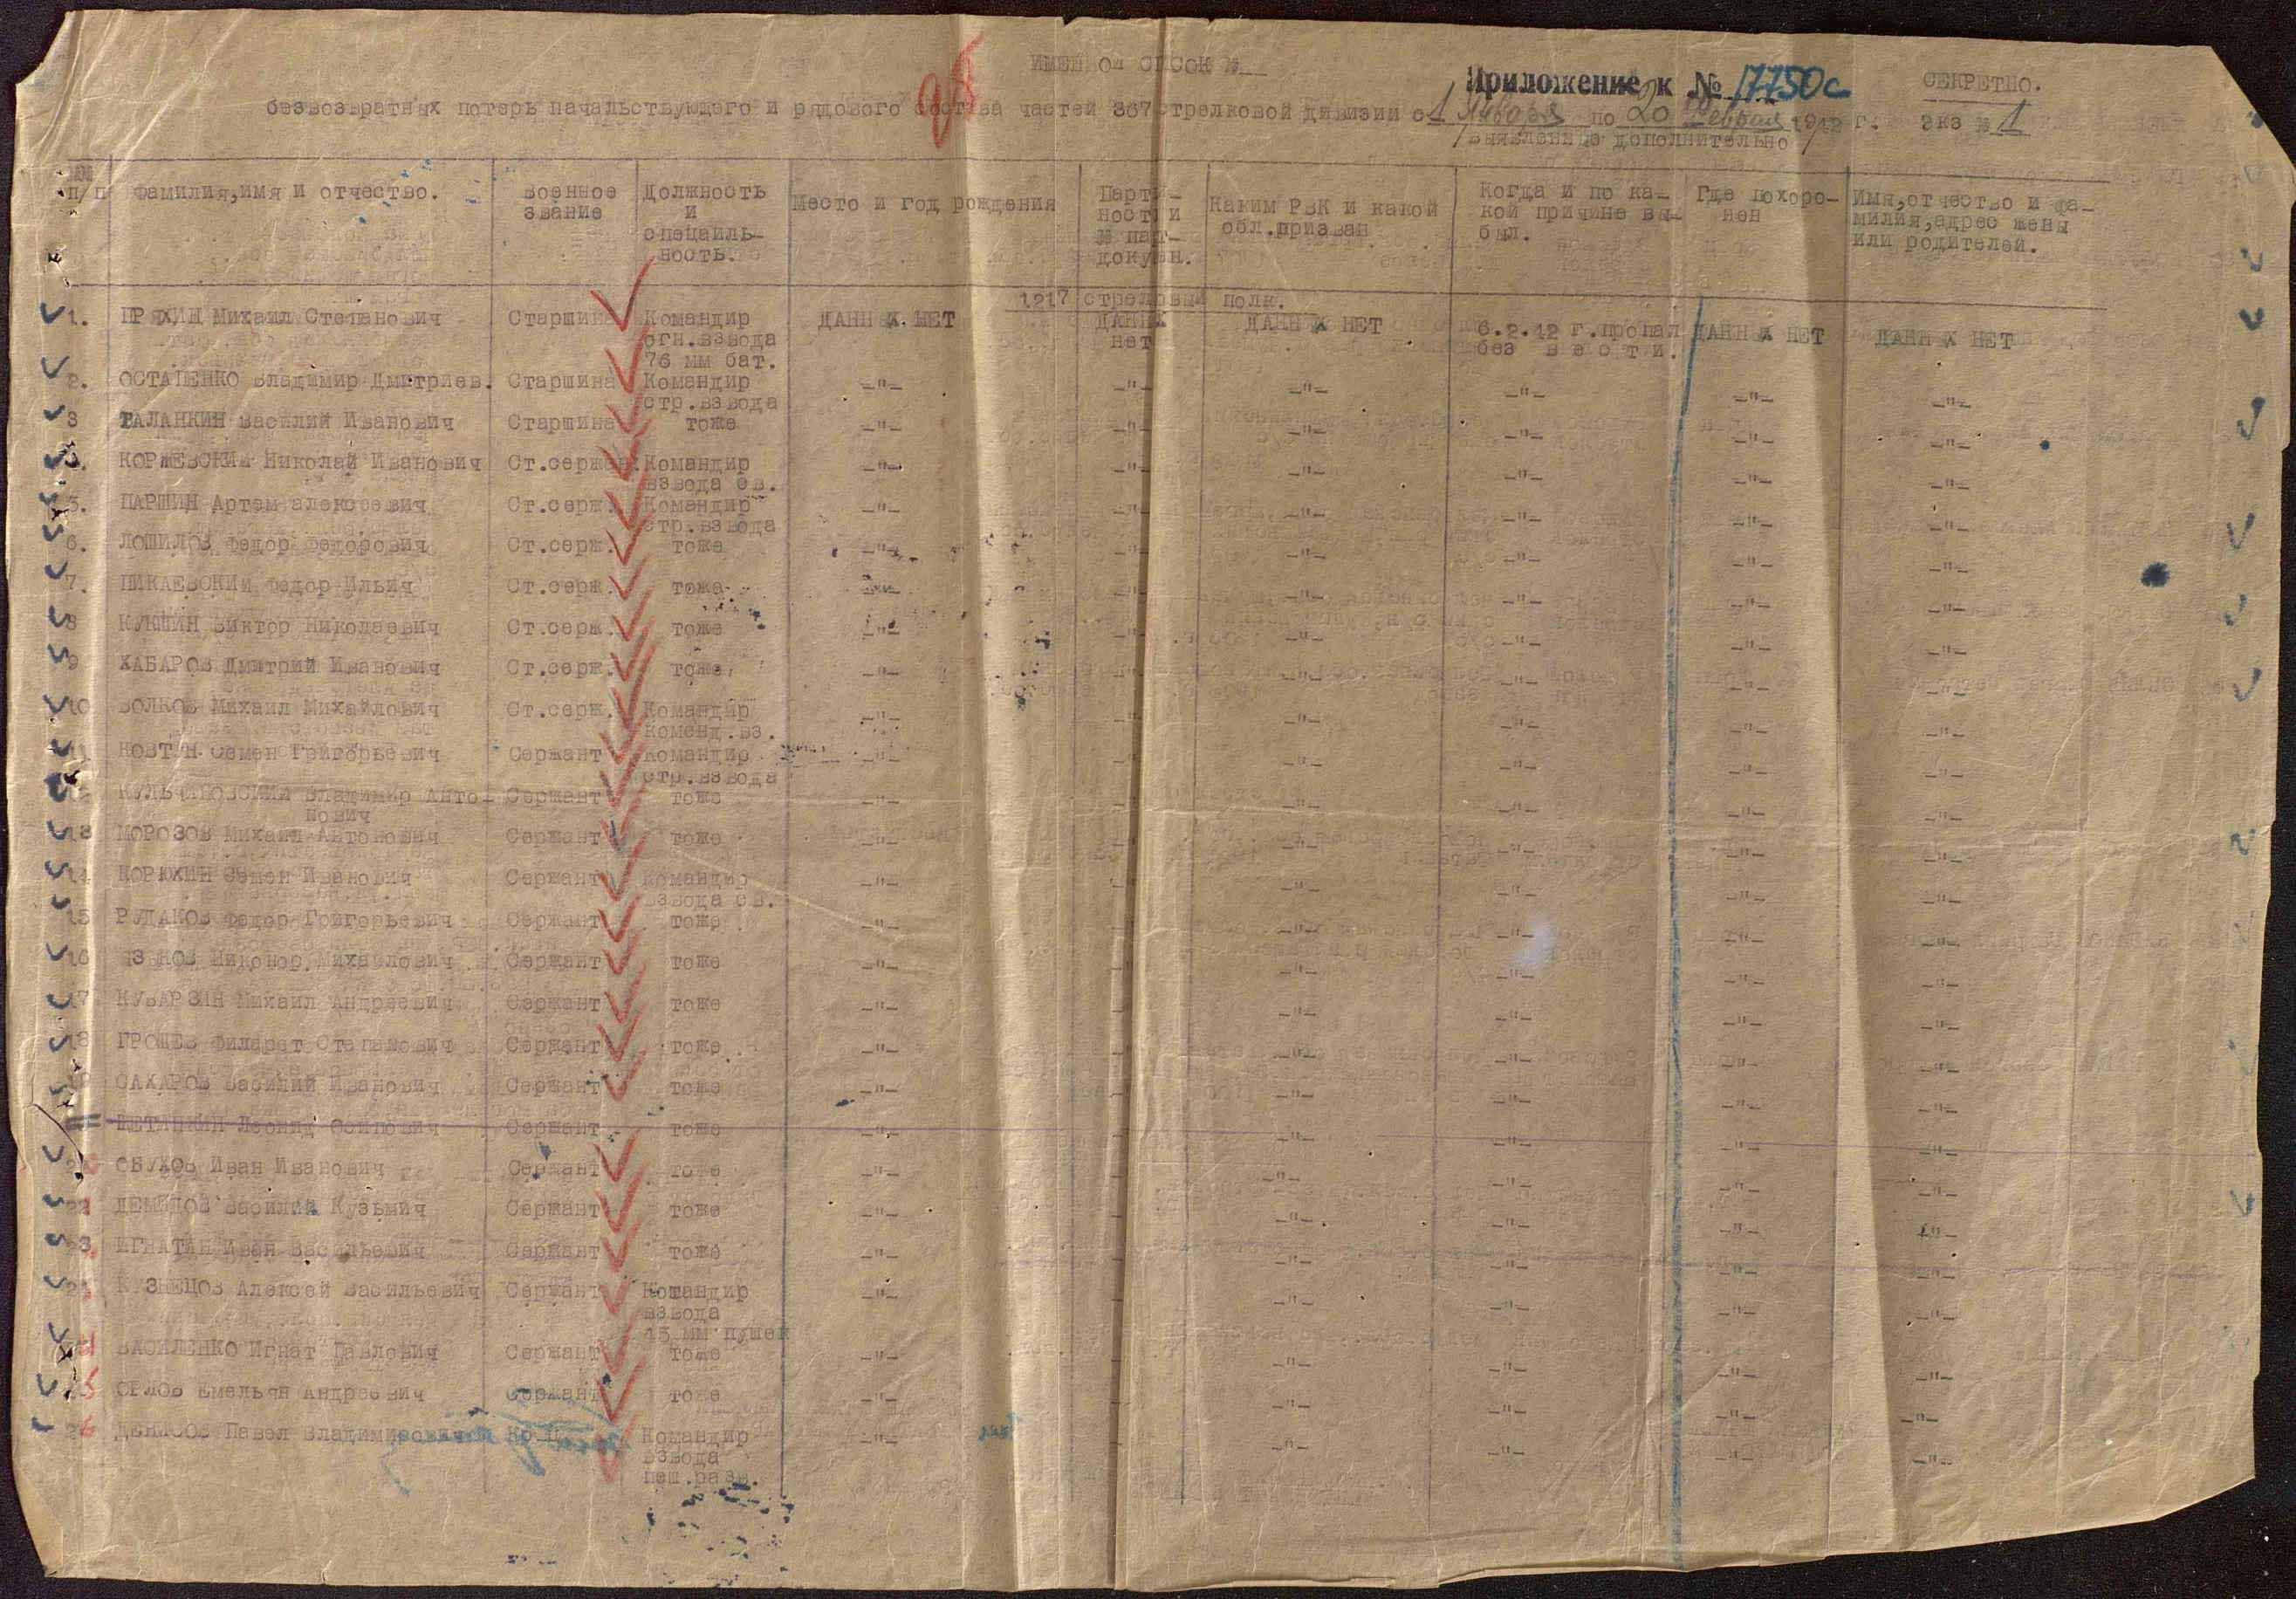 ИМЕННОЙ СПИСОК №
Приложение к № 17750с
СЕКРЕТНО.
98
безвозвратных потерь начальствующего и рядового состава частей 367 стрелковой дивизии с 1 Января по 20 Февраля 1942 г. Экз № 1
выявленные дополнительно
№№ п/п Фамилия, имя и отчество. Военное звание Должность и специаль-ность. Место и год рождения Парти-ность и № парт-докумен. Каким РВК и какой обл. призван Когда и по ка-кой причине вы-был. Где похоро-нен Имя, отчество и фа-милия, адрес жены или родителей.
1217 стрелковый полк.
1. ПРЯХИН Михаил Степанович Старшина Командир огн.взвода 76 мм бат. ДАННЫХ НЕТ ДАННЫХ нет ДАННЫХ НЕТ 6.2.42 г. пропал без вести. ДАННЫХ НЕТ ДАННЫХ НЕТ
2. ОСТАПЕНКО Владимир Дмитриев. Старшина Командир стр.взвода -"- -"- -"- -"- -"- -"-
3 ТАЛАНКИН Василий Иванович Старшина тоже -"- -"- -"- -"- -"- -"-
4. КОРЖЕВСКИЙ Николай Иванович Ст.сержан. Командир взвода св. -"- -"- -"- -"- -"- -"-
5. ПАРШИН Артем Алексеевич Ст.серж. Командир стр.взвода -"- -"- -"- -"- -"- -"-
6. ЛОШИЛОВ Федор Федорович Ст.серж. тоже -"- -"- -"- -"- -"- -"-
7. ПИКАЕВСКИЙ Федор Ильич Ст.серж. тоже -"- -"- -"- -"- -"- -"-
8 КУКШИН Виктор Николаевич Ст.серж. тоже -"- -"- -"- -"- -"- -"-
9 ХАБАРОВ Дмитрий Иванович Ст.серж. тоже -"- -"- -"- -"- -"- -"-
10 ВОЛКОВ Михаил Михайлович Ст.серж. Командир коменд.вз. -"- -"- -"- -"- -"- -"-
11 КОВТУН Семен Григорьевич Сержант Командир стр.взвода -"- -"- -"- -"- -"- -"-
12 Владимир Анто-нович Сержант тоже -"- -"- -"- -"- -"- -"-
13 МОРОЗОВ Михаил Антонович Сержант тоже -"- -"- -"- -"- -"- -"-
14 КОРЮХИН Семен Иванович Сержант Командир взвода св. -"- -"- -"- -"- -"- -"-
15 РУДАКОВ Федор Григорьевич Сержант тоже -"- -"- -"- -"- -"- -"-
16 ЯЗЫКОВ Никонор Михайлович Сержант тоже -"- -"- -"- -"- -"- -"-
17 КУВАРЗИН Михаил Андреевич Сержант тоже -"- -"- -"- -"- -"- -"-
18 ГРОШЕВ Филарет Степанович Сержант тоже -"- -"- -"- -"- -"- -"-
19 САХАРОВ Василий Иванович Сержант тоже -"- -"- -"- -"- -"- -"-
ЩЕТИНКИН Леонид Осипович Сержант тоже -"- -"- -"- -"- -"- -"-
20 ОБУХОВ Иван Иванович Сержант тоже -"- -"- -"- -"- -"- -"-
ДЕМИДОВ Василий Кузьмич Сержант тоже -"- -"- -"- -"- -"- -"-
ИГНАТИН Иван Васильевич Сержант тоже -"- -"- -"- -"- -"- -"-
КУЗНЕЦОВ Алексей Васильевич Сержант Командир взвода 45 мм пушек -"- -"- -"- -"- -"- -"-
ВАСИЛЕНКО Игнат Павлович Сержант тоже -"- -"- -"- -"- -"- -"-
25 ОРЛОВ Емельян Андреевич Сержант тоже -"- -"- -"- -"- -"- -"-
26 ДЕНИСОВ Павел Владимирович Командир взвода пеш.разв. -"- -"- -"- -"- -"- -"-